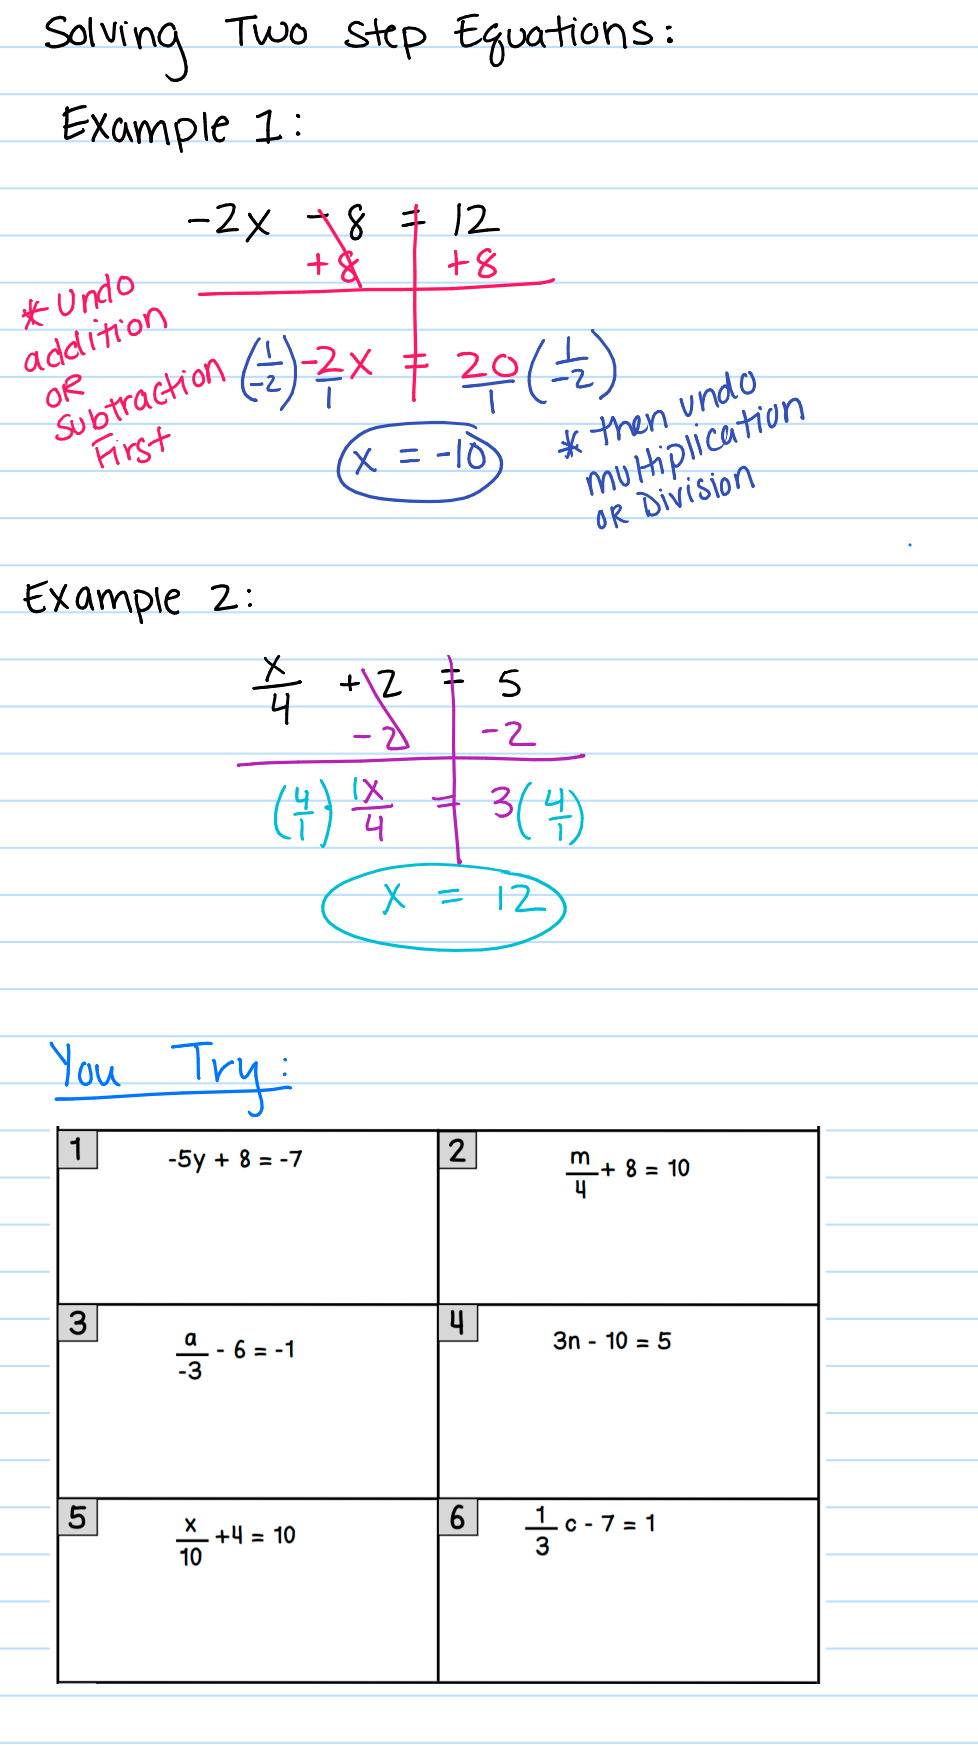 Solving Two step Equations:
Example 1:
-2x - 8 = 12
+8 +8
* Undo
addition
OR
subtraction
First
(1/-2) -2x/1 = 20/1 (1/-2)
x = -10
* then undo
multiplication
OR Division
Example 2:
x/4 + 2 = 5
-2 -2
(4/1) 1x/4 = 3(4/1)
x = 12
You Try:
1
-5y + 8 = -7
2
m/4 + 8 = 10
3
a/-3 - 6 = -1
4
3n - 10 = 5
5
x/10 +4 = 10
6
1/3 c - 7 = 1